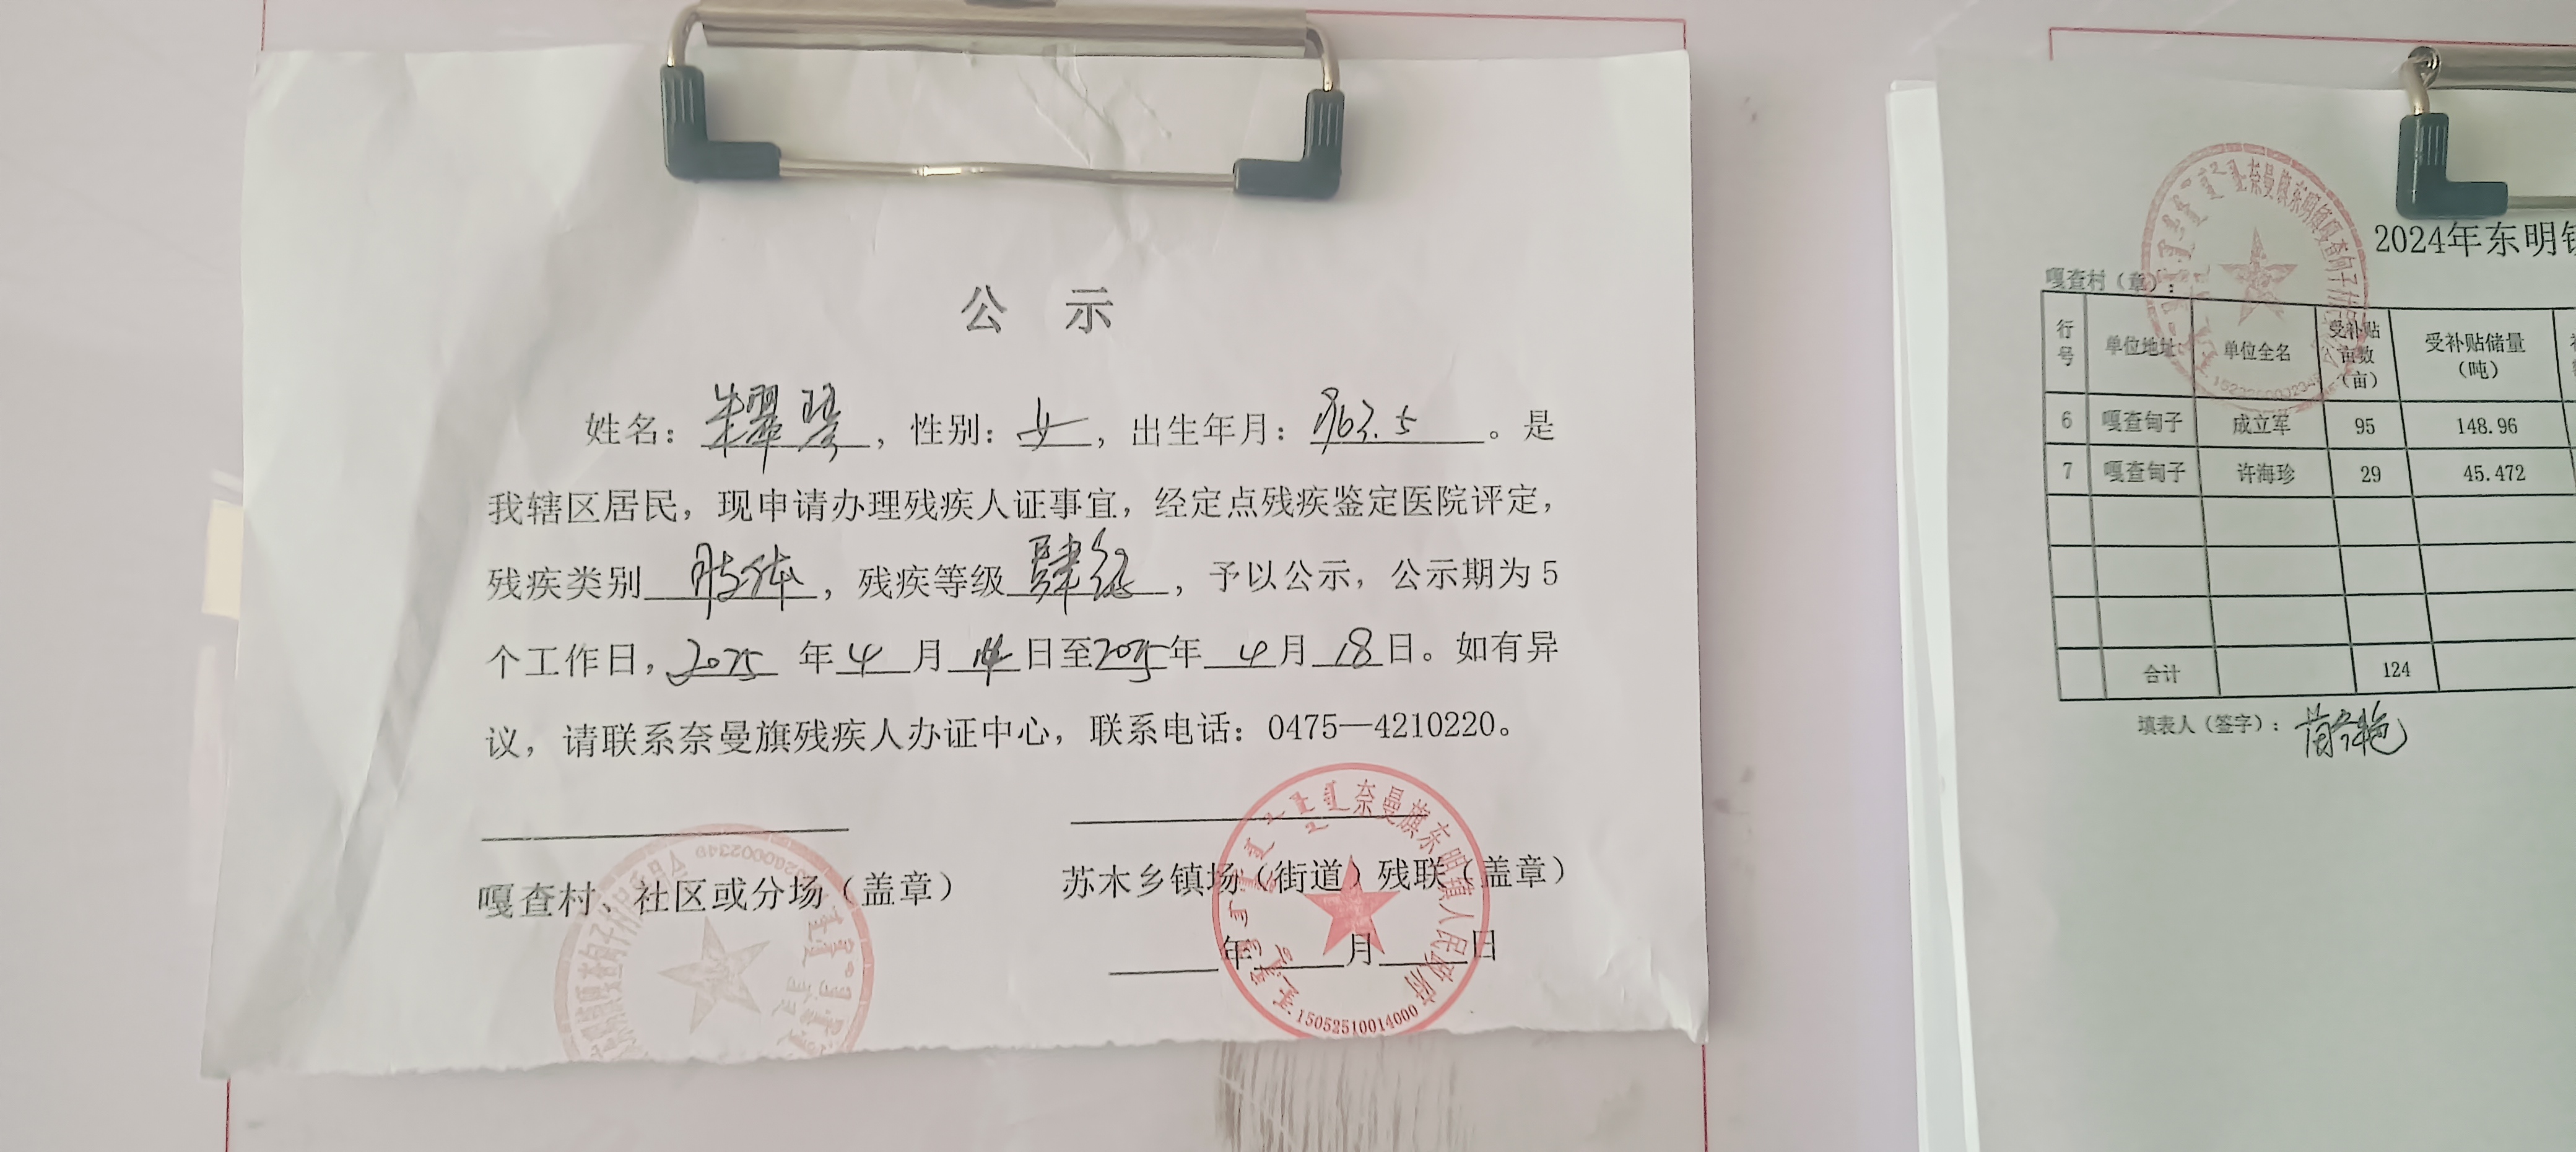 公 示
姓名：朱翠琴，性别：女，出生年月：1963.5。是
我辖区居民，现申请办理残疾人证事宜，经定点残疾鉴定医院评定，
残疾类别 肢体，残疾等级 肆级，予以公示，公示期为 5
个工作日，2025 年 4 月 14 日至 2025 年 4 月 18 日。如有异
议，请联系奈曼旗残疾人办证中心，联系电话：0475—4210220。
嘎查村、社区或分场（盖章）
苏木乡镇场（街道）残联（盖章）
年 月 日
奈曼旗东明镇人民政府
15052510014000
2024年东明镇
嘎查村（章）：
行号 单位地址 单位全名 受补贴亩数（亩） 受补贴储量（吨）
6 嘎查甸子 成立军 95 148.96
7 嘎查甸子 许海珍 29 45.472
合计 124
填表人（签字）：